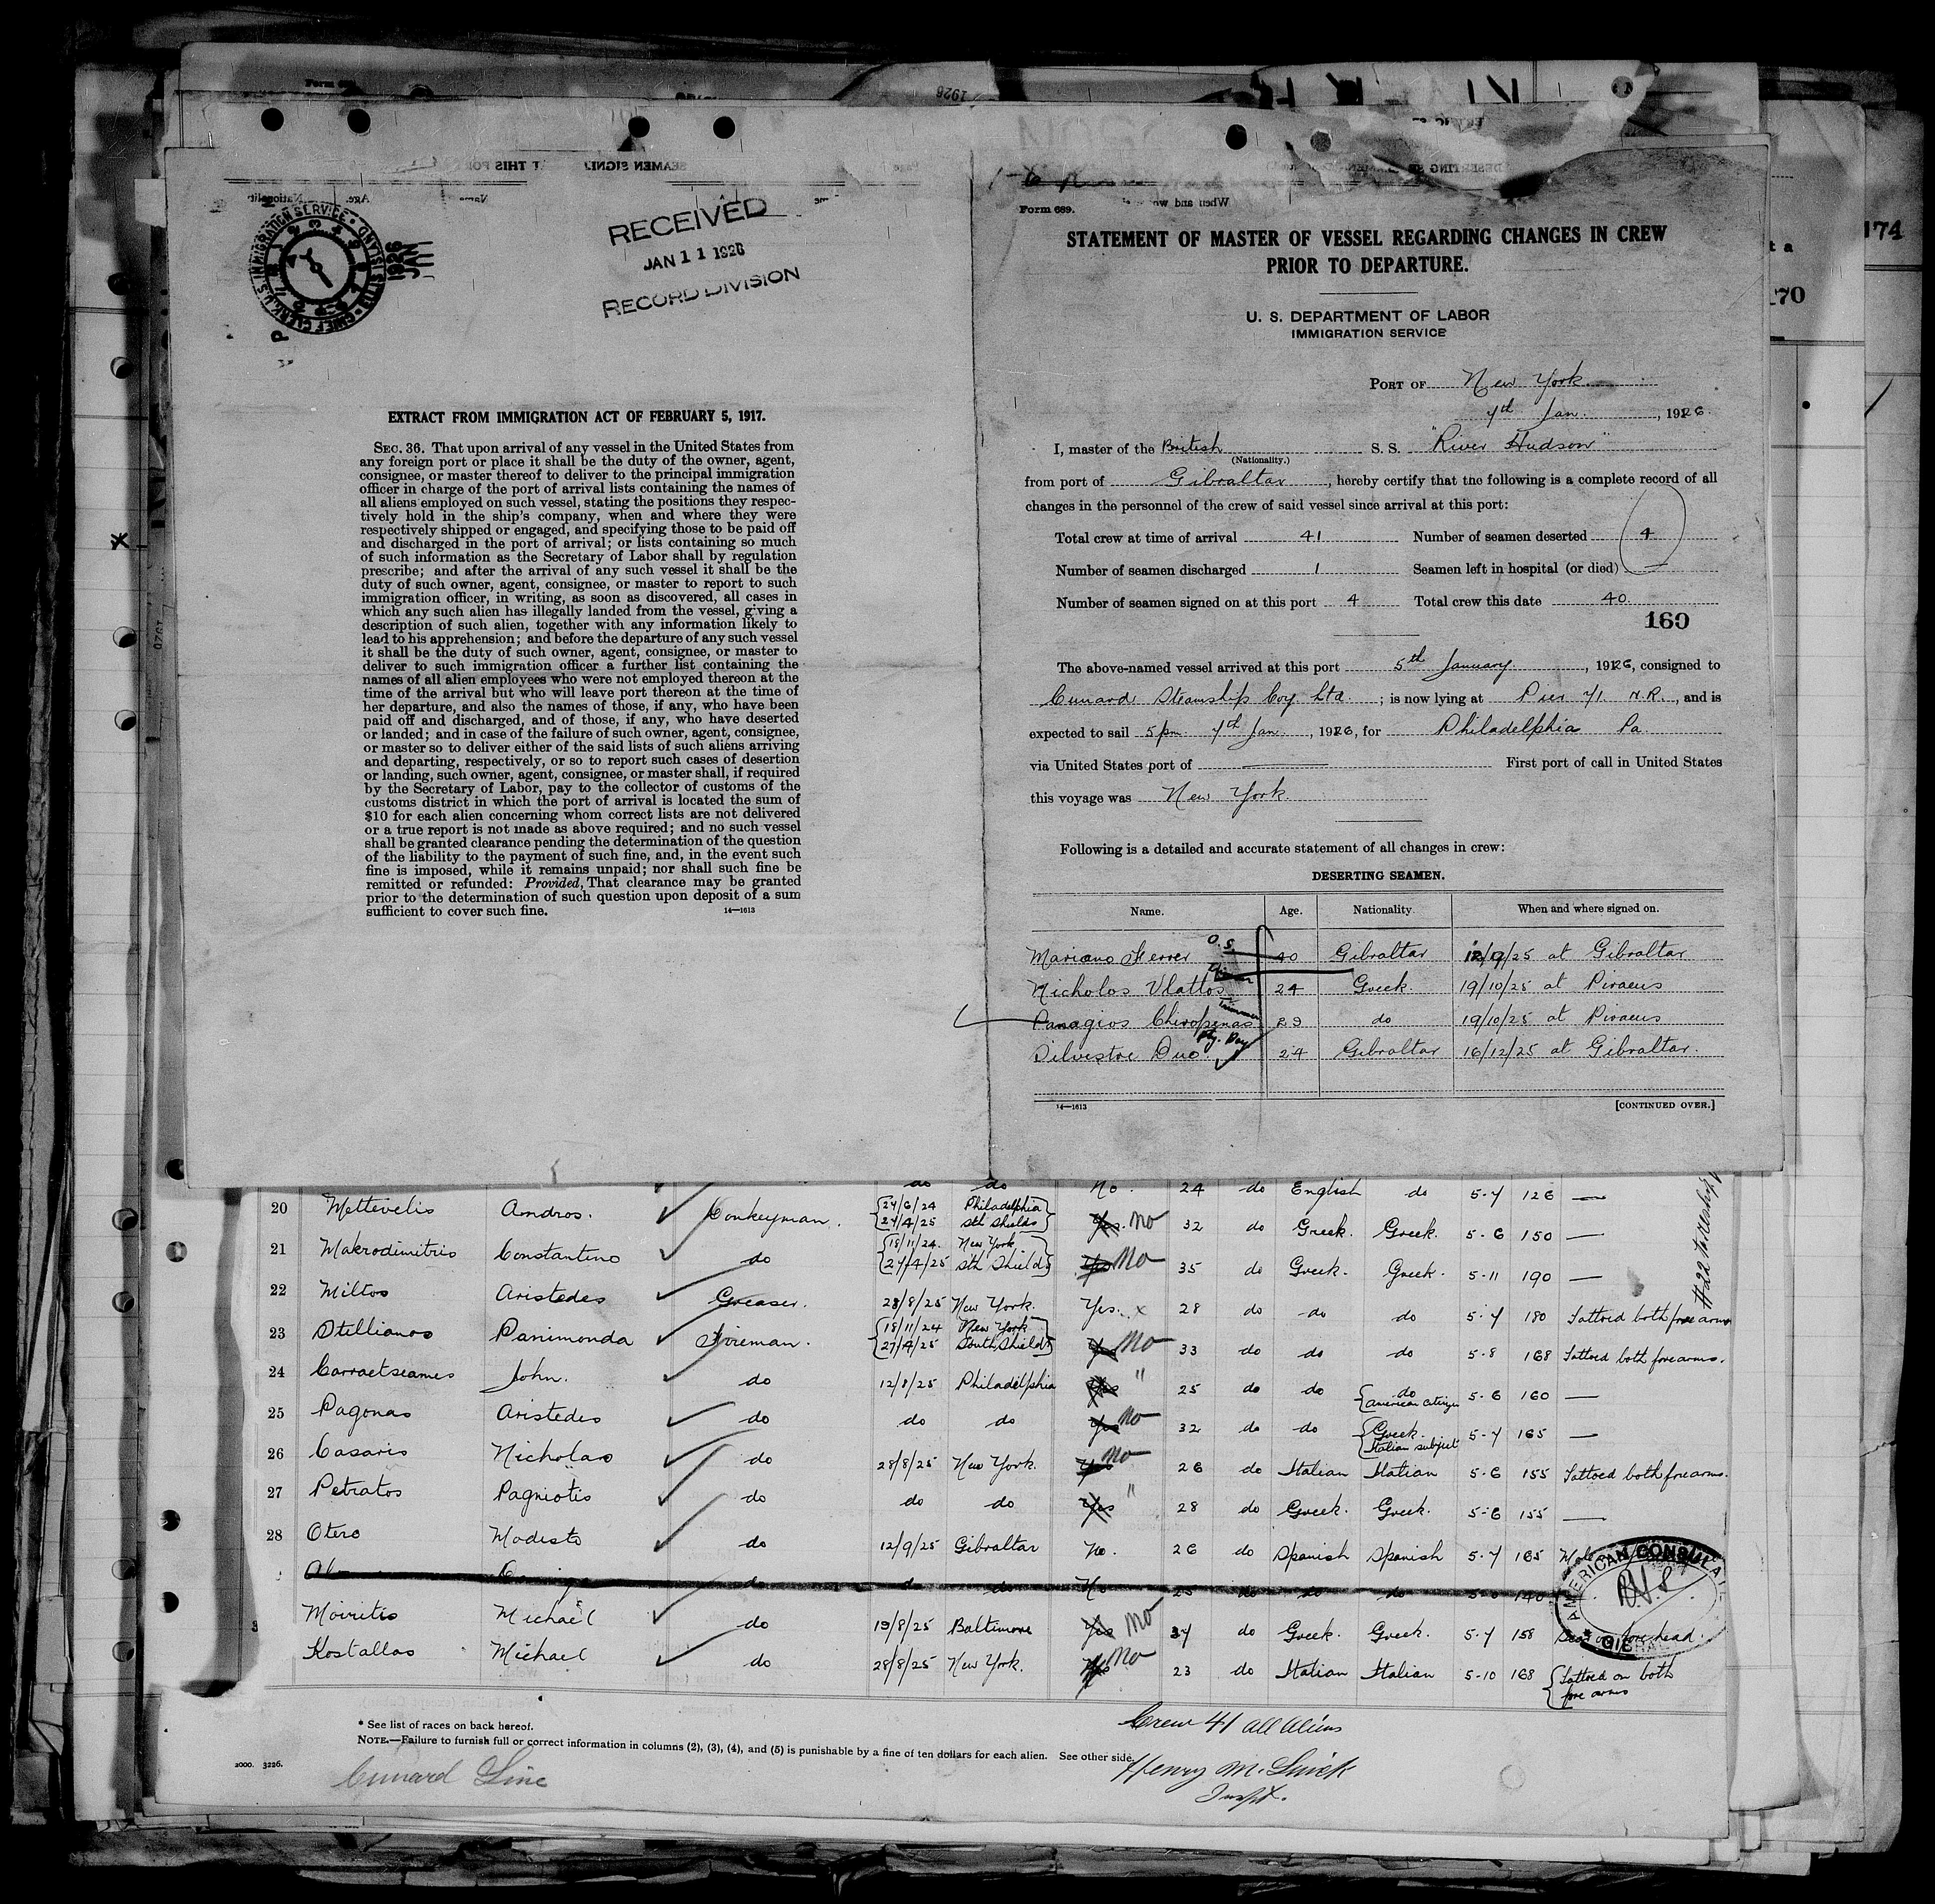 RECEIVED
JAN 11 1926
RECORD DIVISION
EXTRACT FROM IMMIGRATION ACT OF FEBRUARY 5, 1917.
SEC. 36. That upon arrival of any vessel in the United States from
any foreign port or place it shall be the duty of the owner, agent,
consignee, or master thereof to deliver to the principal immigration
officer in charge of the port of arrival lists containing the names of
all aliens employed on such vessel, stating the positions they respec-
tively hold in the ship's company, when and where they were
respectively shipped or engaged, and specifying those to be paid off
and discharged in the port of arrival; or lists containing so much
of such information as the Secretary of Labor shall by regulation
prescribe; and after the arrival of any such vessel it shall be the
duty of such owner, agent, consignee, or master to report to such
immigration officer, in writing, as soon as discovered, all cases in
which any such alien has illegally landed from the vessel, giving a
description of such alien, together with any information likely to
lead to his apprehension; and before the departure of any such vessel
it shall be the duty of such owner, agent, consignee, or master to
deliver to such immigration officer a further list containing the
names of all alien employees who were not employed thereon at the
time of the arrival but who will leave port thereon at the time of
her departure, and also the names of those, if any, who have been
paid off and discharged, and of those, if any, who have deserted
or landed; and in case of the failure of such owner, agent, consignee,
or master so to deliver either of the said lists of such aliens arriving
and departing, respectively, or so to report such cases of desertion
or landing, such owner, agent, consignee, or master shall, if required
by the Secretary of Labor, pay to the collector of customs of the
customs district in which the port of arrival is located the sum of
$10 for each alien concerning whom correct lists are not delivered
or a true report is not made as above required; and no such vessel
shall be granted clearance pending the determination of the question
of the liability to the payment of such fine, and, in the event such
fine is imposed, while it remains unpaid; nor shall such fine be
remitted or refunded: Provided, That clearance may be granted
prior to the determination of such question upon deposit of a sum
sufficient to cover such fine. 14—1613
Form 689.
STATEMENT OF MASTER OF VESSEL REGARDING CHANGES IN CREW
PRIOR TO DEPARTURE.
U. S. DEPARTMENT OF LABOR
IMMIGRATION SERVICE
PORT OF New York
7th Jan. , 1926.
I, master of the British S. S. "River Hudson"
(Nationality.)
from port of Gibraltar , hereby certify that the following is a complete record of all
changes in the personnel of the crew of said vessel since arrival at this port:
Total crew at time of arrival 41 Number of seamen deserted 4
Number of seamen discharged 1 Seamen left in hospital (or died) —
Number of seamen signed on at this port 4 Total crew this date 40
160
The above-named vessel arrived at this port 5th January , 1926, consigned to
Cunard Steamship Coy Ltd. ; is now lying at Pier 71 N.R. , and is
expected to sail 5 pm 7th Jan , 1926, for Philadelphia Pa
via United States port of — First port of call in United States
this voyage was New York
Following is a detailed and accurate statement of all changes in crew:
DESERTING SEAMEN.
Name. Age. Nationality. When and where signed on.
Mariano Ferrer O.S. 40 Gibraltar 12/9/25 at Gibraltar
Nicholos Vlattos 24 Greek. 19/10/25 at Piraeus
Panagios Chiropenas Trimmer 29 do 19/10/25 at Piraeus
Silvestre Duo. 24 Gibraltar 16/12/25 at Gibraltar.
14—1613 [CONTINUED OVER.]
174
170
do do No. 24 do English do 5-7 126 —
20 Mettevelis Andros. Donkeyman. {24/6/24 Philadelphia 27/4/25 Sth Shields} Yes. No 32 do Greek. Greek. 5-6 150 —
21 Makrodimitris Constantino do {18/11/24. New York 27/4/25 Sth Shields} Yes No 35 do Greek. Greek. 5-11 190 —
22 Miltos Aristedes Greaser. 28/8/25 New York. Yes. x 28 do do do 5-7 180 Tattoed both fore arms
23 Stellianos Panimonda Fireman. {18/11/24 New York 27/4/25 South Shields} Yes No 33 do do do 5-8 168 Tattoed both forearms.
24 Carraetseames John. do 12/8/25 Philadelphia Yes " 25 do do {do American citizen 5-6 160 —
25 Pagonas Aristedes do do do Yes No 32 do do {Greek. Italian subject 5-7 165 —
26 Casaris Nicholas do 28/8/25 New York. Yes No 26 do Italian Italian 5-6 155 Tattoed both forearms.
27 Petratos Pagniotis do do do Yes " 28 do Greek. Greek. 5-6 155 —
28 Otero Modesto do 12/9/25 Gibraltar No. 26 do Spanish Spanish 5-7 165
do do do No 25 do do do 5-0 140
Moiritis Michael do 19/8/25 Baltimore Yes No 37 do Greek. Greek. 5-7 158 Scar on forehead.
Kostallas Michael do 28/8/25 New York. Yes No 23 do Italian Italian 5-10 168 {Tattoed on both fore arms
AMERICAN CONSULATE
* See list of races on back hereof.
NOTE.—Failure to furnish full or correct information in columns (2), (3), (4), and (5) is punishable by a fine of ten dollars for each alien. See other side.
2000. 3226.
Cunard Line
Crew 41 all Aliens
Henry M.
Inspt.